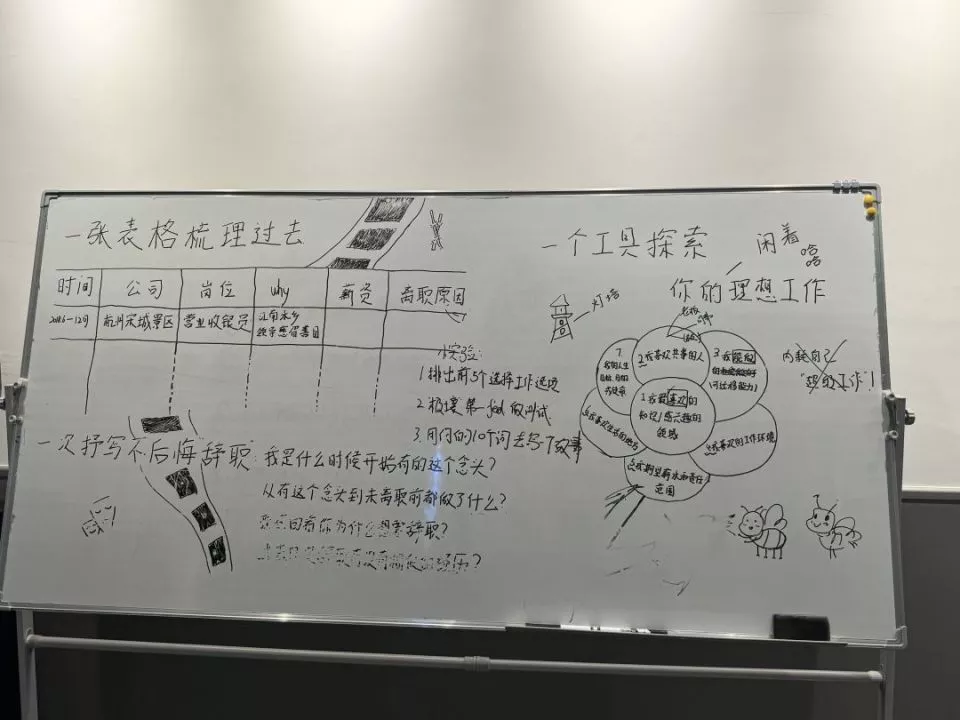 一张表格梳理过去
时间 公司 岗位 why 薪资 离职原因
杭州宋城景区 营业收银员 江南水乡
一次抒写"不后悔"辞职:
我是什么时候开始有的这个念头?
从有这个念头到未离职前都做了什么?
你为什么想要辞职?
小实验:
1.排出前5个选择工作选项
2.极壤第一job做测试
3.用你的10个词去写1个故事
一个工具探索
闲着
哈
哈
你的理想工作
灯塔
老板
同事
2.我喜欢共事的人
3.我
(可迁移能力)
7.
我的人生
1.我最喜欢的
知识/感兴趣的
领域
6.我喜欢生活的地方
4.我喜欢的工作环境
5.我期望薪水和责任
范围
内耗自己
"想的工作"!